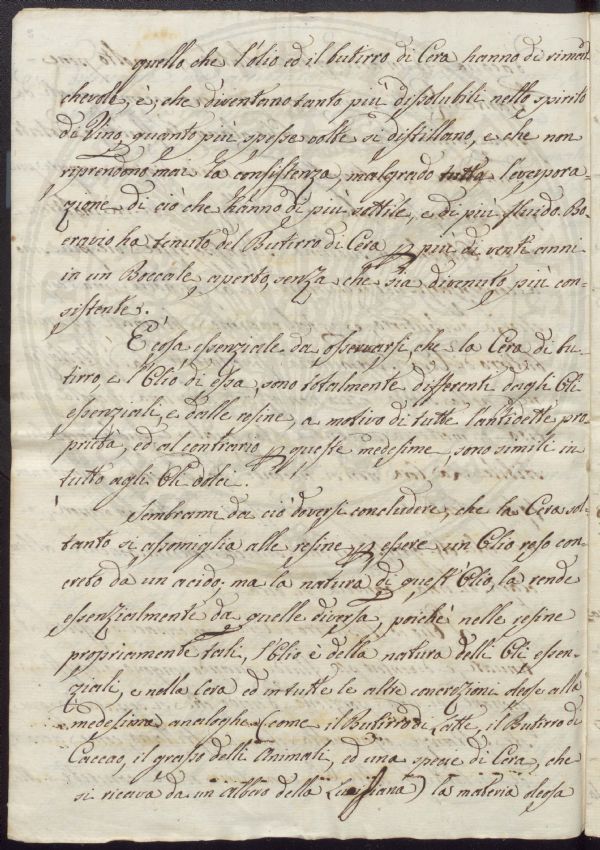 quello che l'olio ed il butirro di Cera hanno di rimar
chevole, è, che diventano tanto più dissolubili nello spirito
di Vino, quanto più spesse volte si distillano, e che non
riprendono mai la consistenza, malgrado tutta l'evapora-
zione di ciò che hanno di più sottile, e di più fluido. Bo-
eravio ha tenuto del Butirro di Cera p più di venti anni
in un Boccale aperto, senza che sia divenuto più con-
sistente.
È cosa essenziale da osservarsi, che la Cera di bu-
tirro, e l'Olio di essa, sono totalmente differenti dagli Oli
essenziali, e dalle resine, a motivo di tutte l'antidette pro
prietà, ed al contrario p queste medesime sono simili in
tutto agli Oli dolci.
Sembrami da ciò doversi concludere, che la Cera sol-
tanto si assomiglia alle resine p essere un Olio reso con
creto da un acido; ma la natura di quest'Olio, la rende
essenzialmente da quelle diversa, poichè nelle resine
propriamente tali, l'Olio è della natura delli Oli essen-
ziali, e nella Cera ed in tutte le altre concrezioni oleose alla
medesima analoghe (come il Butirro di Latte, il Butirro di
Caccao, il grasso delli Animali, ed una specie di Cera, che
si ricava da un Albero della Luisiana) la materia oleosa